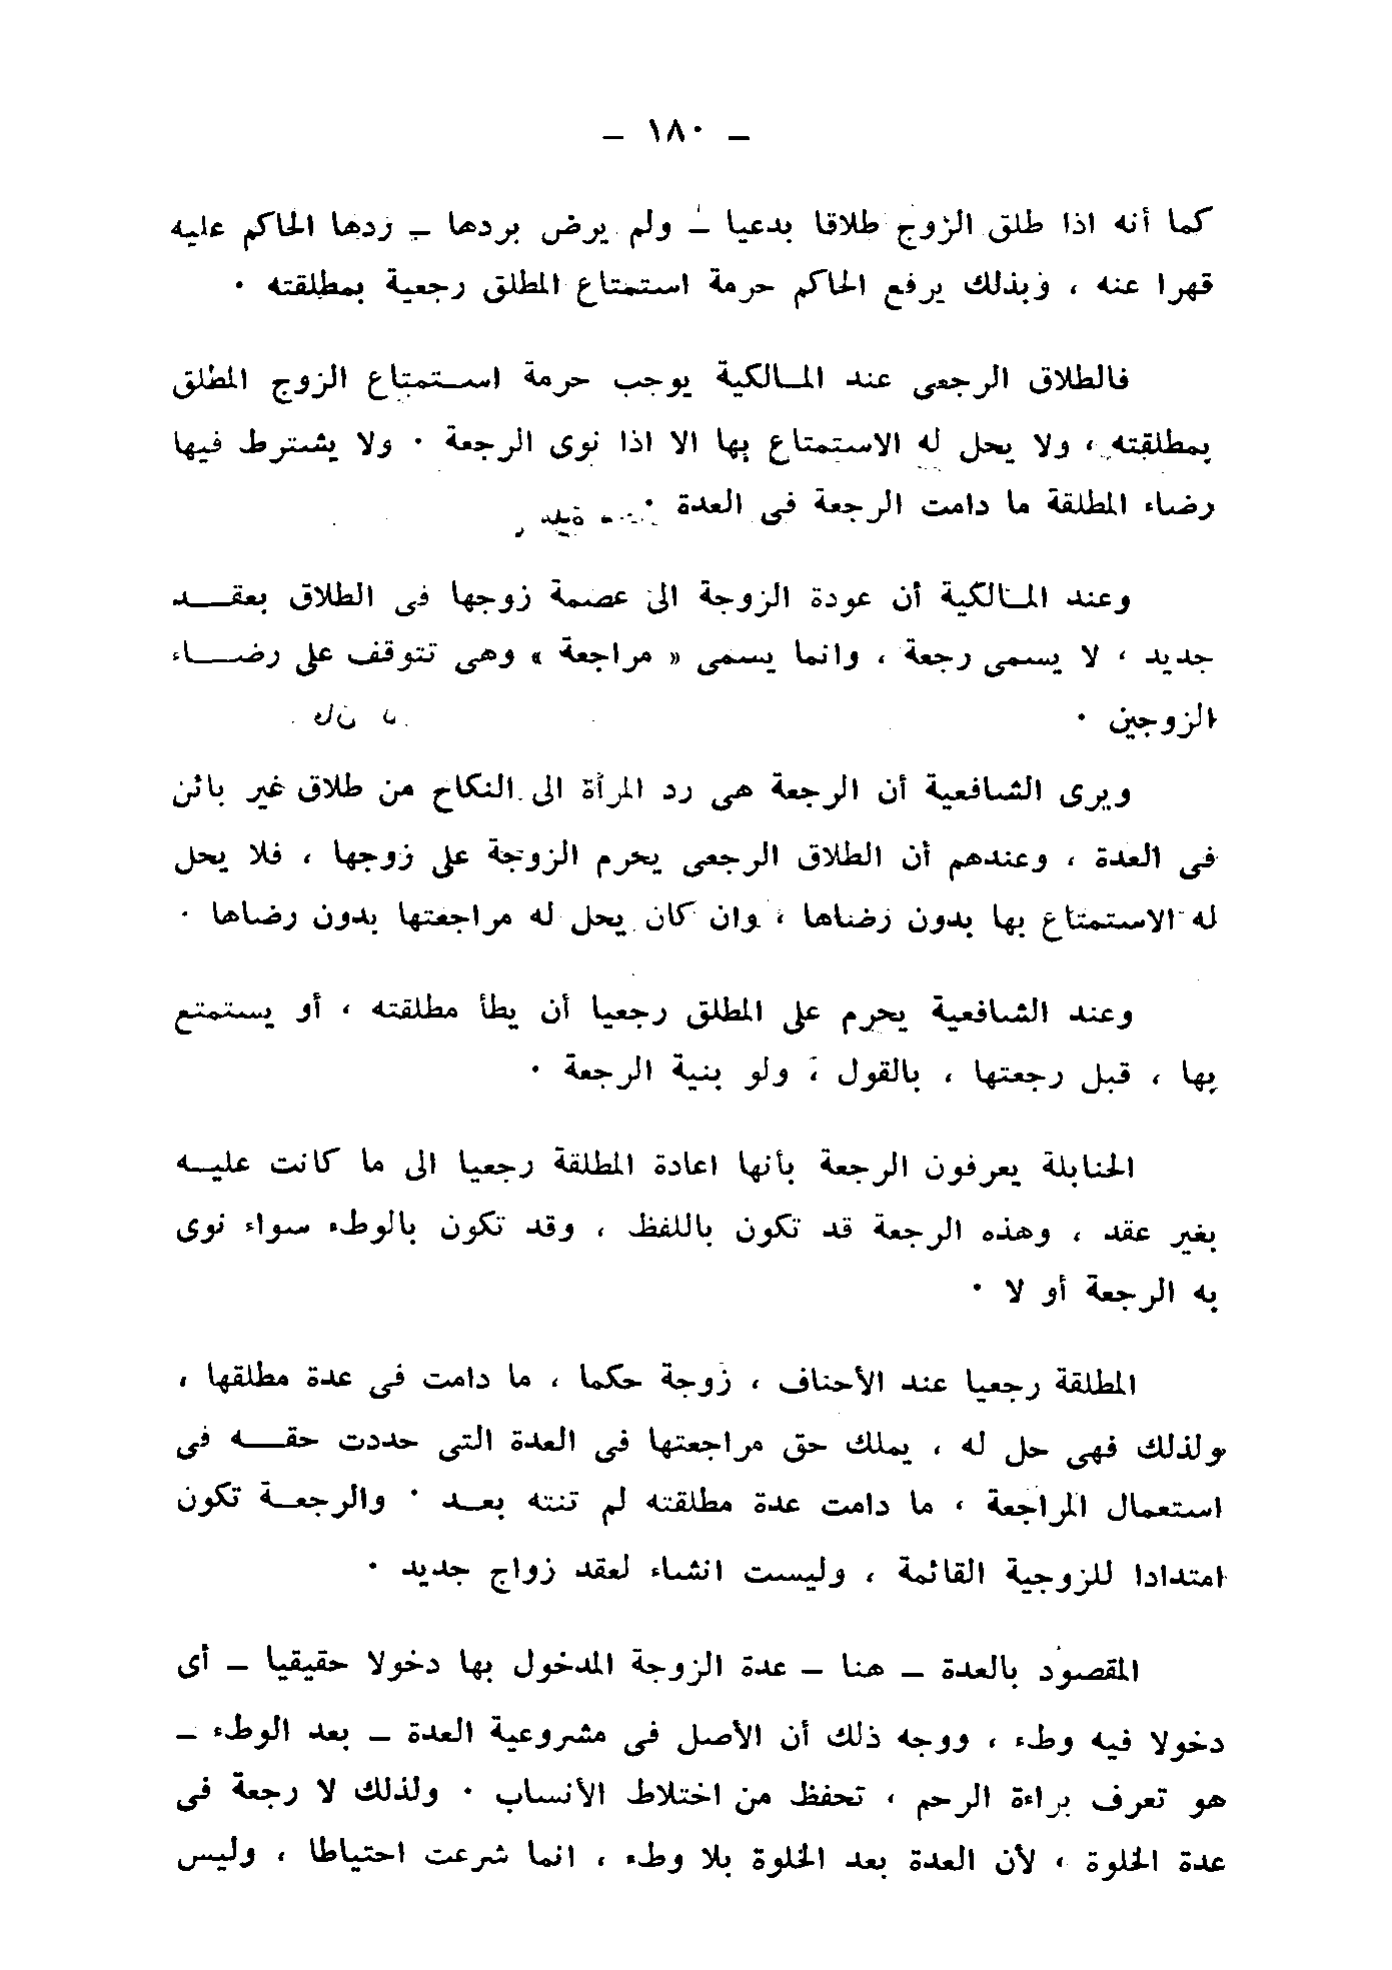 – ١٨٠ –
كما أنه اذا طلق الزوج طلاقا بدعيا – ولم يرض بردها – ردها الحاكم عليه
قهرا عنه ، وبذلك يرفع الحاكم حرمة استمتاع المطلق رجعية بمطلقته ٠
فالطلاق الرجعى عند المالكية يوجب حرمة استمتاع الزوج المطلق
بمطلقته ، ولا يحل له الاستمتاع بها الا اذا نوى الرجعة ٠ ولا يشترط فيها
رضاء المطلقة ما دامت الرجعة فى العدة ٠
وعند المالكية أن عودة الزوجة الى عصمة زوجها فى الطلاق بعقد
جديد ، لا يسمى رجعة ، وانما يسمى « مراجعة » وهى تتوقف على رضاء
الزوجين ٠
ويرى الشافعية أن الرجعة هى رد المرأة الى النكاح من طلاق غير بائن
فى العدة ، وعندهم أن الطلاق الرجعى يحرم الزوجة على زوجها ، فلا يحل
له الاستمتاع بها بدون رضاها ، وان كان يحل له مراجعتها بدون رضاها ٠
وعند الشافعية يحرم على المطلق رجعيا أن يطأ مطلقته ، أو يستمتع
بها ، قبل رجعتها ، بالقول ، ولو بنية الرجعة ٠
الحنابلة يعرفون الرجعة بأنها اعادة المطلقة رجعيا الى ما كانت عليه
بغير عقد ، وهذه الرجعة قد تكون باللفظ ، وقد تكون بالوطء سواء نوى
به الرجعة أو لا ٠
المطلقة رجعيا عند الأحناف ، زوجة حكما ، ما دامت فى عدة مطلقها ،
ولذلك فهى حل له ، يملك حق مراجعتها فى العدة التى حددت حقه فى
استعمال المراجعة ، ما دامت عدة مطلقته لم تنته بعد ٠ والرجعة تكون
امتدادا للزوجية القائمة ، وليست انشاء لعقد زواج جديد ٠
المقصود بالعدة – هنا – عدة الزوجة المدخول بها دخولا حقيقيا – أى
دخولا فيه وطء ، ووجه ذلك أن الأصل فى مشروعية العدة – بعد الوطء –
هو تعرف براءة الرحم ، تحفظ من اختلاط الأنساب ٠ ولذلك لا رجعة فى
عدة الخلوة ، لأن العدة بعد الخلوة بلا وطء ، انما شرعت احتياطا ، وليس